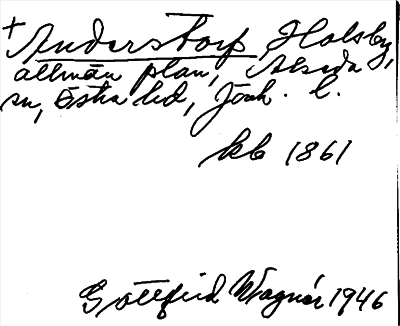 + Anderstorp, Holsby,
allmän plan, Alseda
sn, Östra hd, Jönk. l.
kb 1861
Gottfrid Wagnér 1946